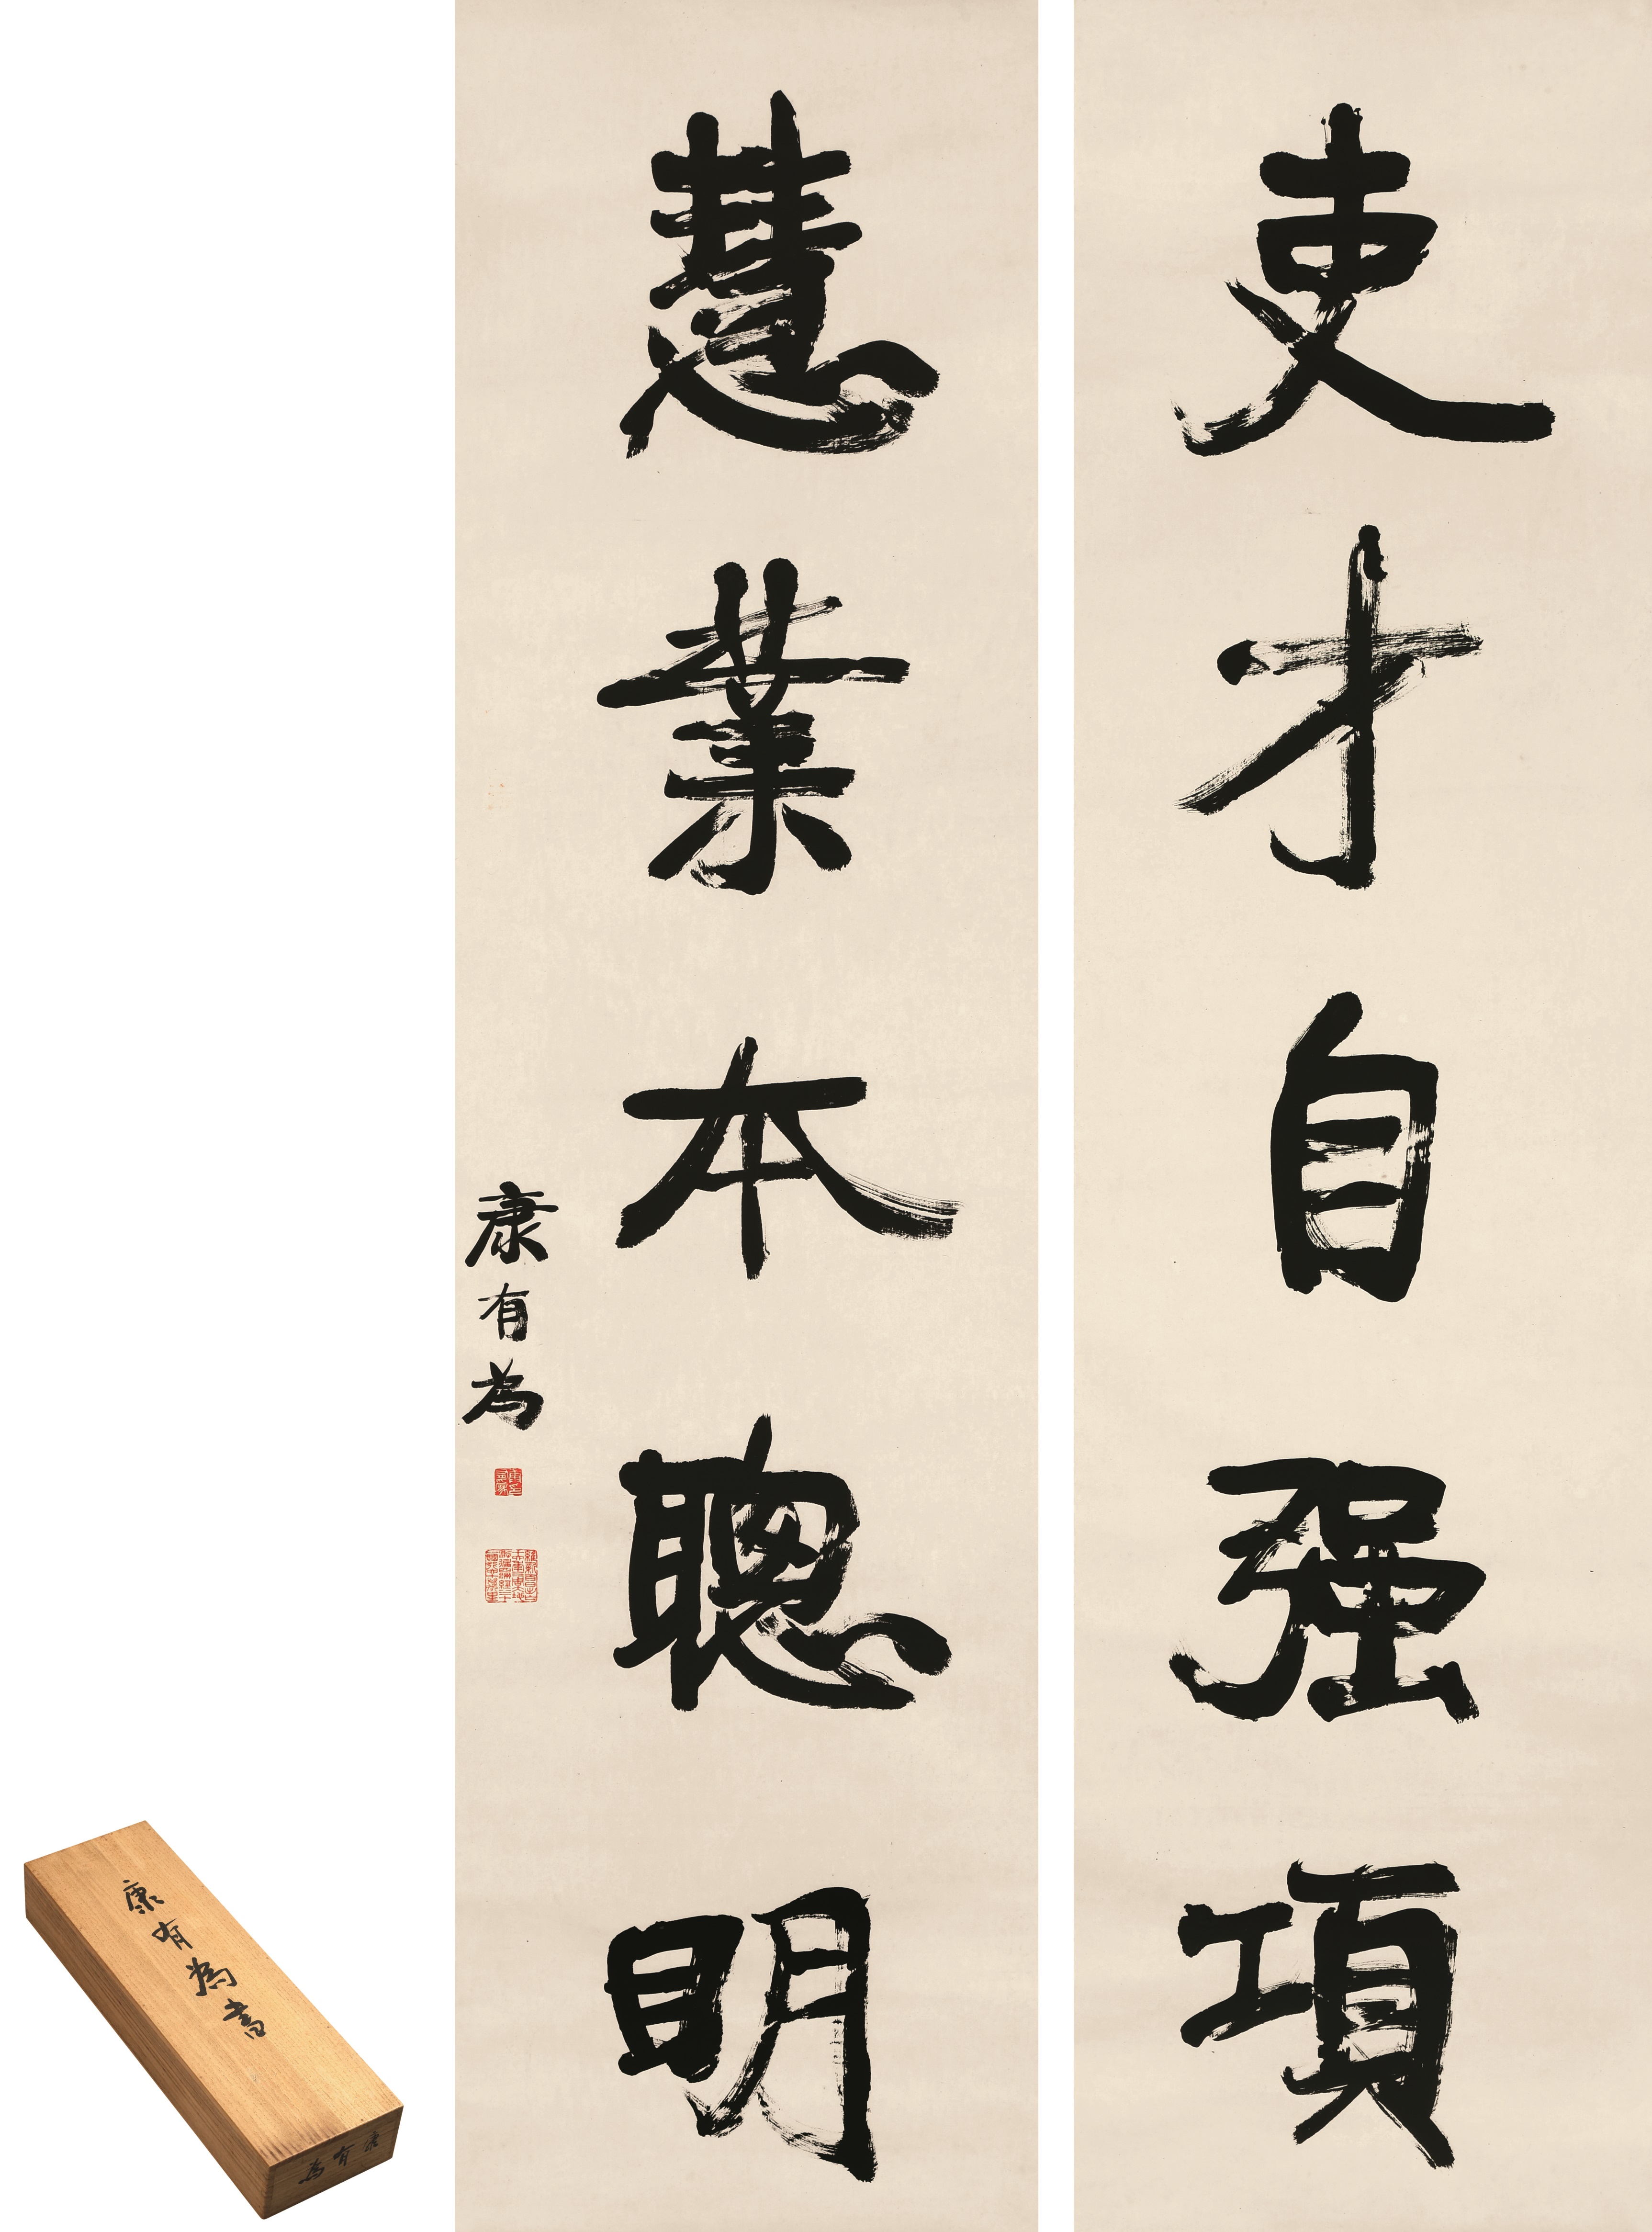 吏才自强項
慧業本聰明
康有為
康有為書
康有為